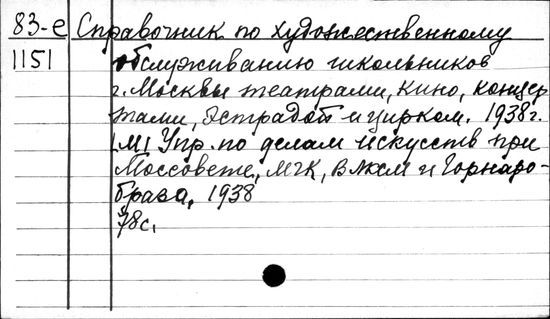 83-е Справочник по художественному
1151 обслуживанию школьников
г. Москвы театрами, кино, концер
тами, эстрадой и цирком. 1938 г.
[М] Упр. по делам искусств при
Моссовете, МГК, ВЛКСМ и Горнаро-
браза, 1938
78 с.